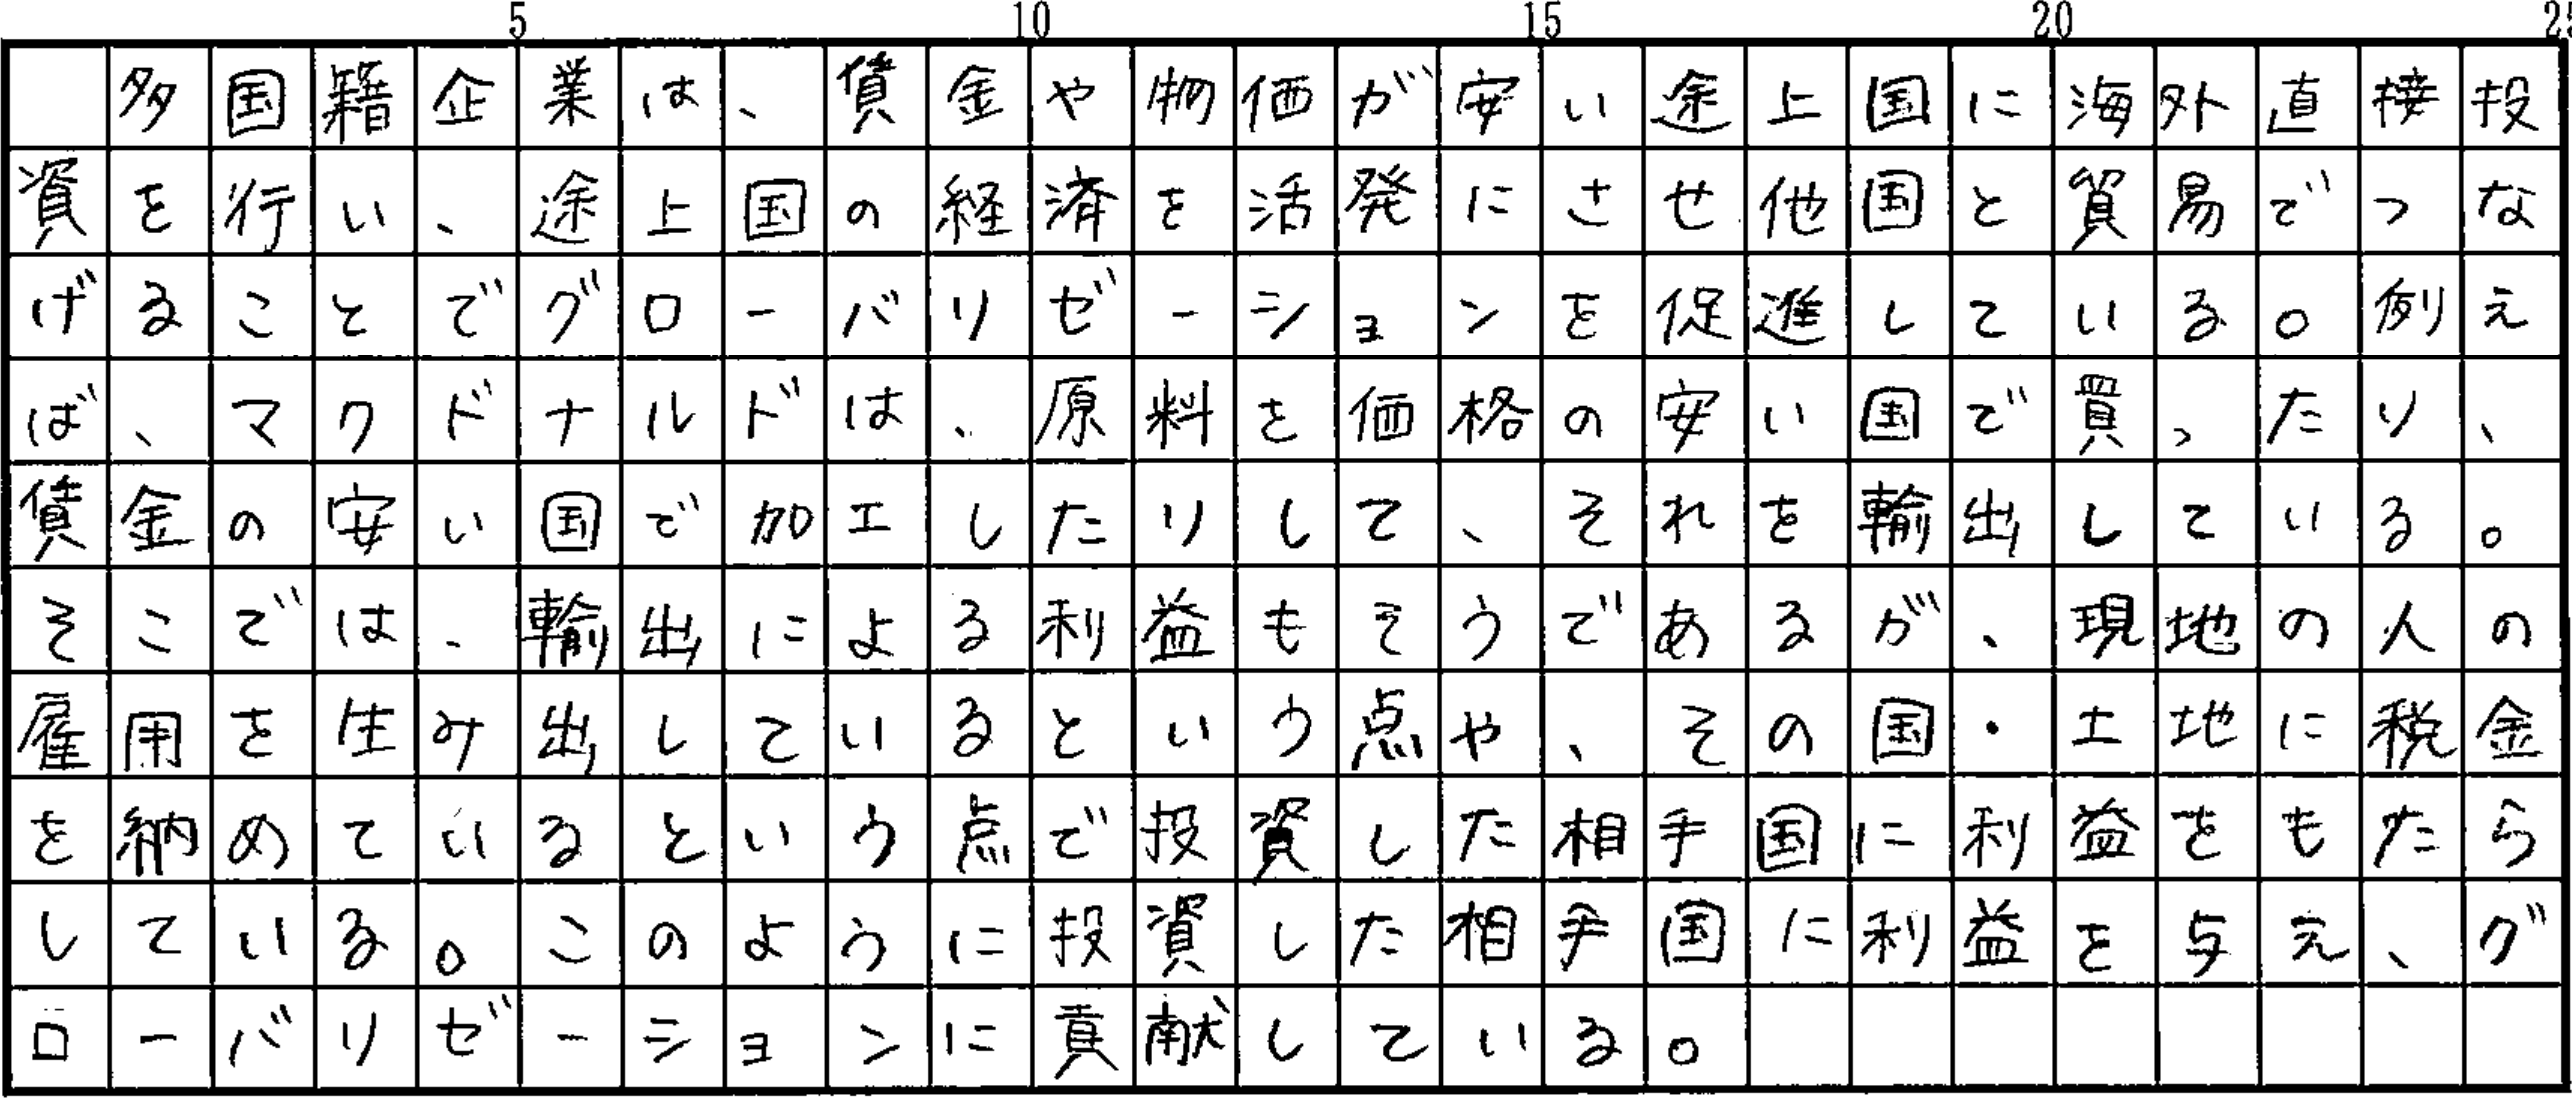 5 10 15 20 25
多国籍企業は、賃金や物価が安い途上国に海外直接投
資を行い、途上国の経済を活発にさせ他国と貿易でつな
げることでグローバリゼーションを促進している。例え
ば、マクドナルドは、原料を価格の安い国で買ったり、
賃金の安い国で加工したりして、それを輸出している。
そこでは、輸出による利益もそうであるが、現地の人の
雇用を生み出しているという点や、その国・土地に税金
を納めているという点で投資した相手国に利益をもたら
している。このように投資した相手国に利益を与え、グ
ローバリゼーションに貢献している。